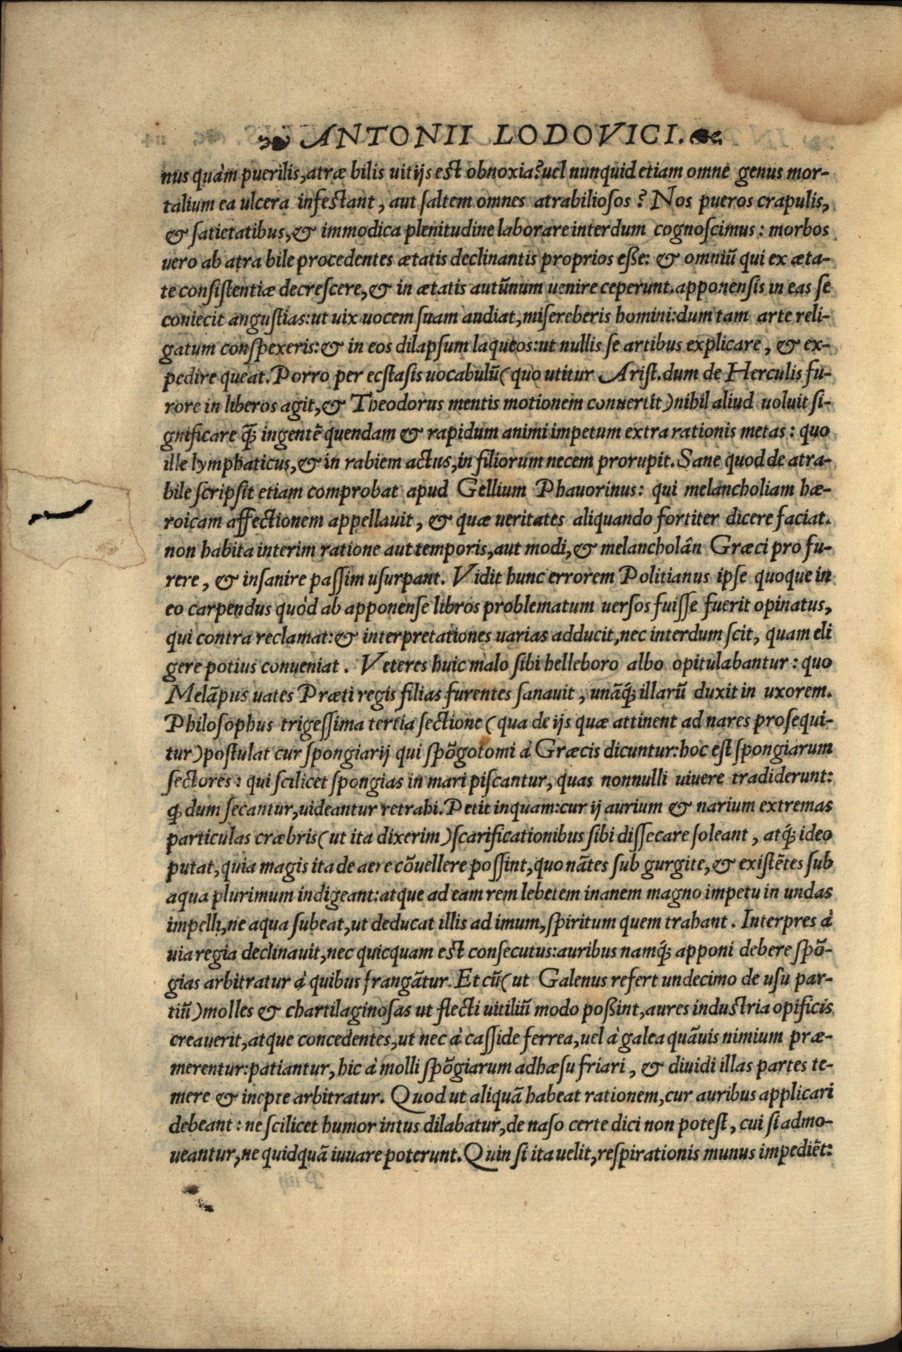 ANTONII LODOVICI.
nus quàm puerilis, atræ bilis uitijs est obnoxia? uel nunquid etiam omne genus mor-
talium ea ulcera infestant, aut saltem omnes atrabiliosos? Nos pueros crapulis,
& satietatibus, & immodica plenitudine laborare interdum cognoscimus: morbos
uero ab atra bile procedentes ætatis declinantis proprios esse: & omniũ qui ex æta-
te consistentiæ decrescere, & in ætatis autũnum uenire ceperunt. apponensis in eas se
coniecit angustias: ut uix uocem suam audiat, misereberis homini: dum tam arte reli-
gatum conspexeris: & in eos dilapsum laqueos: ut nullis se artibus explicare, & ex-
pedire queat. Porro per ecstasis uocabulũ (quo utitur Arist. dum de Herculis fu-
rore in liberos agit, & Theodorus mentis motionem conuertit) nihil aliud uoluit si-
gnificare q̃ ingentẽ quendam & rapidum animi impetum extra rationis metas: quo
ille lymphaticus, & in rabiem actus, in filiorum necem prorupit. Sane quod de atra-
bile scripsit etiam comprobat apud Gellium Phauorinus: qui melancholiam hæ-
roicam affectionem appellauit, & quæ ueritates aliquando fortiter dicere faciat.
non habita interim ratione aut temporis, aut modi, & melancholãn Græci pro fu-
rere, & insanire passim usurpant. Vidit hunc errorem Politianus ipse quoque in
eo carpendus quòd ab apponense libros problematum uersos fuisse fuerit opinatus,
qui contra reclamat: & interpretationes uarias adducit, nec interdum scit, quam eli
gere potius conueniat. Veteres huic malo sibi helleboro albo opitulabantur: quo
Melãpus uates Præti regis filias furentes sanauit, unãq́; illarũ duxit in uxorem.
Philosophus trigessima tertia sectione (qua de ijs quæ attinent ad nares prosequi-
tur) postulat cur spongiarij qui spõgotomi à Græcis dicuntur: hoc est spongiarum
sectores: qui scilicet spongias in mari piscantur, quas nonnulli uiuere tradiderunt:
q́; dum secantur, uideantur retrahi. Petit inquam: cur ij aurium & narium extremas
particulas cræbris (ut ita dixerim) scarificationibus sibi dissecare soleant, atq́; ideo
putat, quia magis ita de aere cõuellere possint, quo nãtes sub gurgite, & existẽtes sub
aqua plurimum indigeant: atque ad eam rem lebetem inanem magno impetu in undas
impelli, ne aqua subeat, ut deducat illis ad imum, spiritum quem trahant. Interpres à
uia regia declinauit, nec quicquam est consecutus: auribus namq́; apponi debere spõ-
gias arbitratur à quibus frangãtur. Et cũ (ut Galenus refert undecimo de usu par-
tiũ) molles & chartilaginosas ut flecti uitiliũ modo possint, aures industria opificis
creauerit, atque concedentes, ut nec à casside ferrea, uel à galea quãuis nimium præ-
merentur: patiantur, hic à molli spõgiarum adhæsu friari, & diuidi illas partes te-
mere & inepte arbitratur. Quod ut aliquã habeat rationem, cur auribus applicari
debeant: ne scilicet humor intus dilabatur, de naso certe dici non potest, cui si admo-
ueantur, ne quidquã iuuare poterunt. Quin si ita uelit, respirationis munus impediẽt: